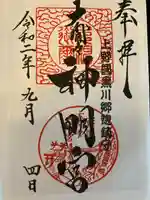 奉拝
上野國黒川郷總鎮守
大間々
神明宮
令和二年九月四日